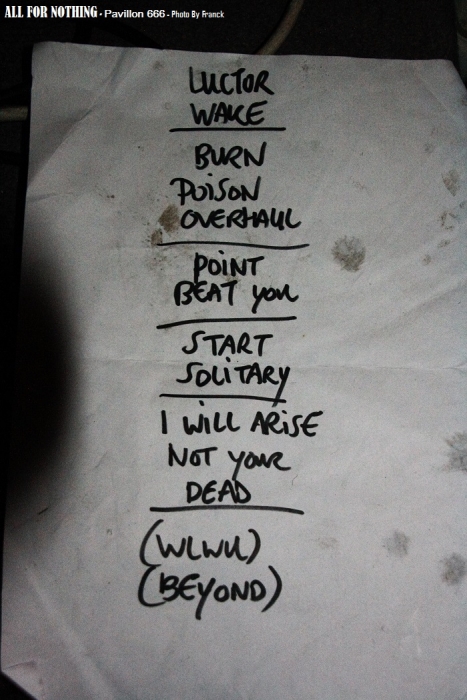 ALL FOR NOTHING - Pavillon 666 - Photo By Franck
LUCTOR
WAKE
BURN
POISON
OVERHAUL
POINT
BEAT YOU
START
SOLITARY
I WILL ARISE
NOT YOUR
DEAD
(WLWU)
(BEYOND)